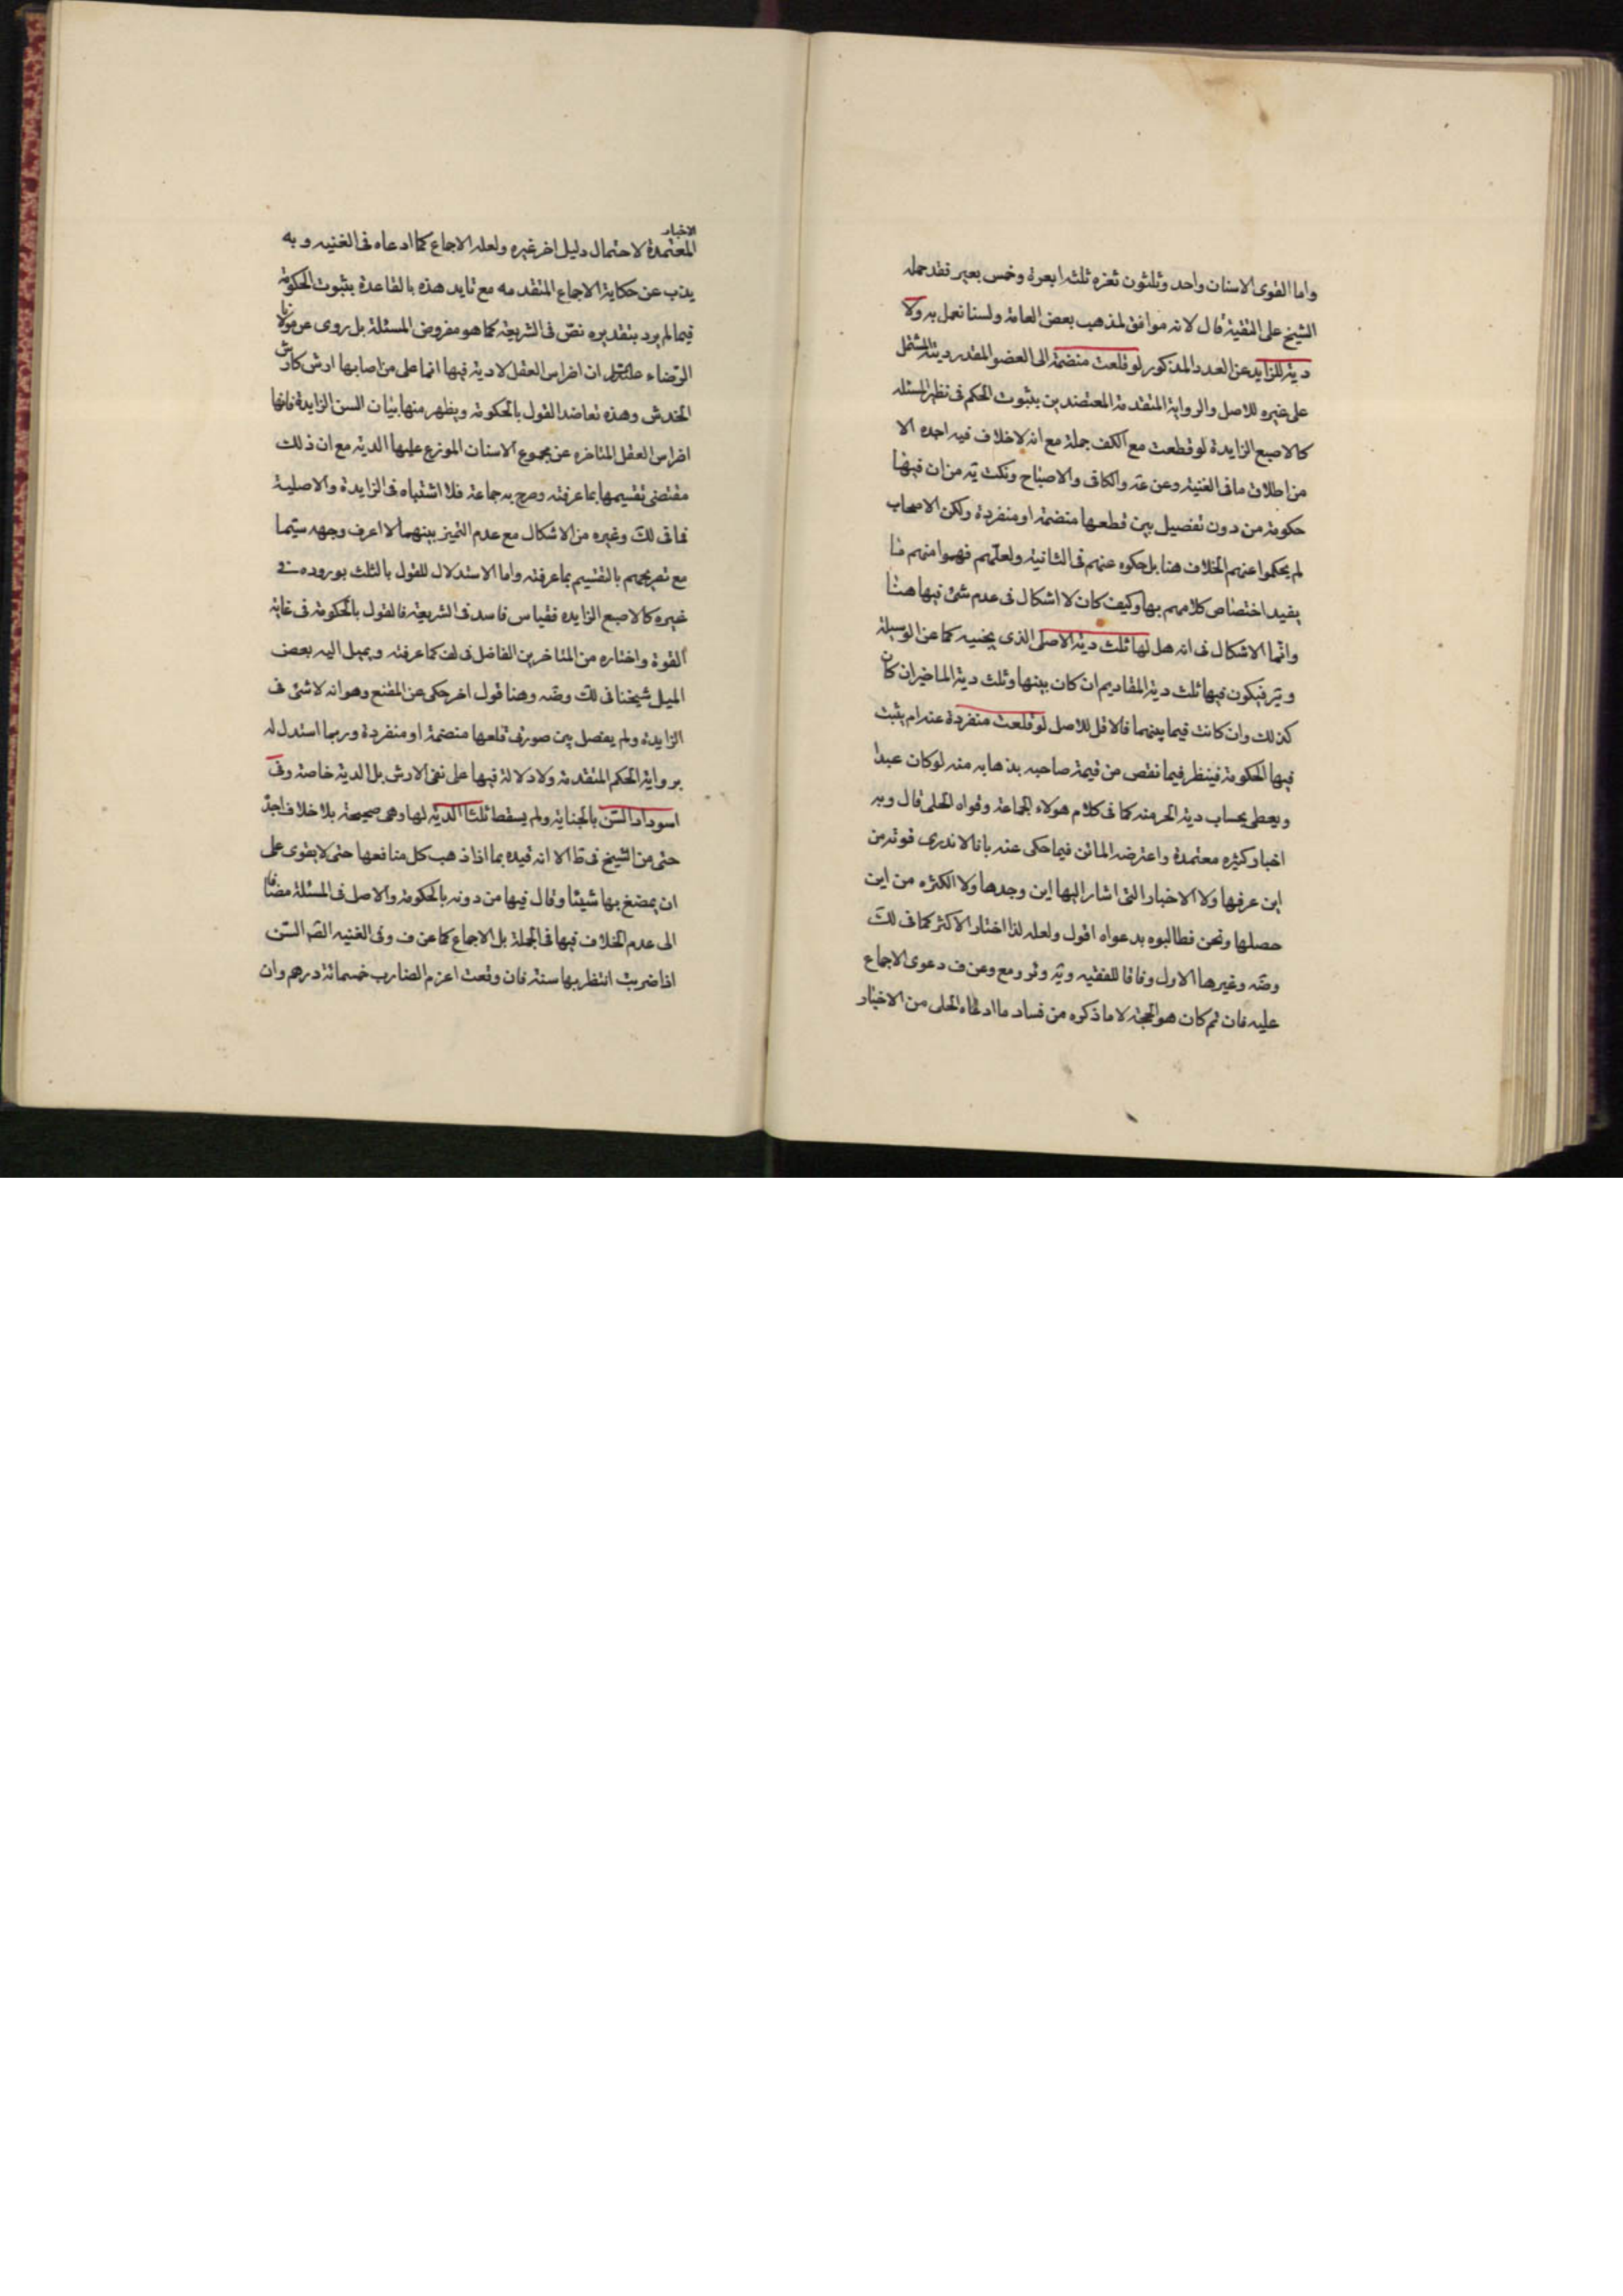 واما القوى الاسنان واحد وثلثون ثغره ثلثه ابعرة وخمس بعير فقد حمله
الشيخ على التقية قال لانه موافق لمذهب بعض العامة ولسنا نعمل به ولا
دية للزايد عن العدد المذكور لو قلعت منضمة الى العضو المقدر ديته المشتمل
على غيره للاصل والرواية المتقدمة المعتضدين بثبوت الحكم فى نظير المسئله
كالاصبع الزايدة لو قطعت مع الكف جملة مع انه لاخلاف فيه اجده الا
من اطلاق ما فى الغنية وعن عة والكافى والاصباح ونكت ية من ان فيها
حكومة من دون تفصيل بين قطعها منضمة او منفردة ولكن الاصحاب
لم يحكوا عنهم الخلاف هنا بل حكوه عنهم فى الثانية ولعلهم فهموا منهم ما
يفيد اختصاص كلامهم بها وكيف كان لا اشكال فى عدم شئ فيها هنا
وانما الاشكال فى انه هل لها ثلث دية الاصلى الذى بجنبيه كما عن الوسيلة
و ير فيكون فيها ثلث دية المقاديم ان كان بينها وثلث دية الماخير ان كان
كذلك وان كانت فيما بينهما فالاقل للاصل لو قلعت منفردة عنه ام يثبت
فيها الحكومة فينظر فيما نقص من قيمة صاحبه بذهابه منه لو كان عبدا
ويعطى بحساب دية الحر منه كما فى كلام هولاء الجماعة وقواه الحلى قال وبه
اخبار كثيره معتمدة واعترضه الماتن فيما حكى عنه بانا لاندرى قوته من
اين عرفها ولا الاخبار التى اشار اليها اين وجدها ولا الكثره من اين
حصلها ونحن نطالبوه بدعواه اقول ولعله لذا اختار الاكثر كما فى لك
وضه وغيرها الاول وفاقا للفقيه وية وئر ومع وعن ف دعوى الاجماع
عليه فان تم كان هو الحجة لا ما ذكره من فساد ما ادعاه الحلى من الاخبار
الاخبار
المعتمدة لاحتمال دليل اخر غيره ولعله الاجماع كما ادعاه فى الغنيه وبه
يذب عن حكاية الاجماع المتقدمه مع تايد هذه بالقاعدة بثبوت الحكومة
فيما لم يرد بتقديره نص فى الشريعة كما هو مفروض المسئلة بل روى عن مولانا
الرضاء ان اضراس العقل لا دية فيها انما على من اصابها ارش كارش
الخدش وهذه تعاضد القول بالحكومة ويظهر منها بيان السن الزايدة فانها
اضراس العقل المتاخره عن مجموع الاسنان الموزع عليها الدية مع ان ذلك
مقتضى تقسيمها بما عرفته وصرح به جماعة فلا اشتباه فى الزايدة والاصلية
فما فى لك وغيره من الاشكال مع عدم التميز بينهما لا اعرف وجهه سيّما
مع تصريحهم بالتقسيم بما عرفته واما الاستدلال للقول بالثلث بوروده فى
غيره كالاصبع الزايده فقياس فاسد فى الشريعة فالقول بالحكومة فى غاية
القوة واختاره من المتاخرين الفاضل فى لف كما عرفته ويميل اليه بعض
الميل شيخنا فى لك وضه وهنا قول اخر حكى عن المقنع وهو انه لا شئ فى
الزايدة ولم يفصل بين صورتى قلعها منضمة او منفردة وربما استدل له
برواية الحكم المتقدمة ولا دلالة فيها على نفى الارش بل الدية خاصة وفى
اسوداد السّن بالجناية ولم يسقط ثلثا الدية لها وهى صحيحة بلا خلاف اجده
حتى من الشيخ فى ط الا انه قيده بما اذا ذهب كل منافعها حتى لايقوى على
ان يمضغ بها شيئا وقال فيها من دونه بالحكومة والاصل فى المسئلة مضافا
الى عدم الخلاف فيها فى الجملة بل الاجماع كما عن ف وفى الغنيه السّن
اذا ضربت انتظر بها سنة فان وقعت اغرم الضارب خمسمائة درهم وان